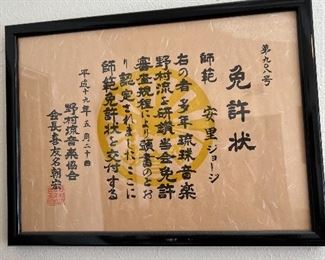 第九〇八号
免許状
師範 安里ジョージ
右の者多年琉球音楽
野村流を研鑽当会免許
審査規程により頭書のとお
り認定されましたここに
師範免許状を交付する
平成十九年五月二十四
野村流音楽協会
会長喜友名朝宏